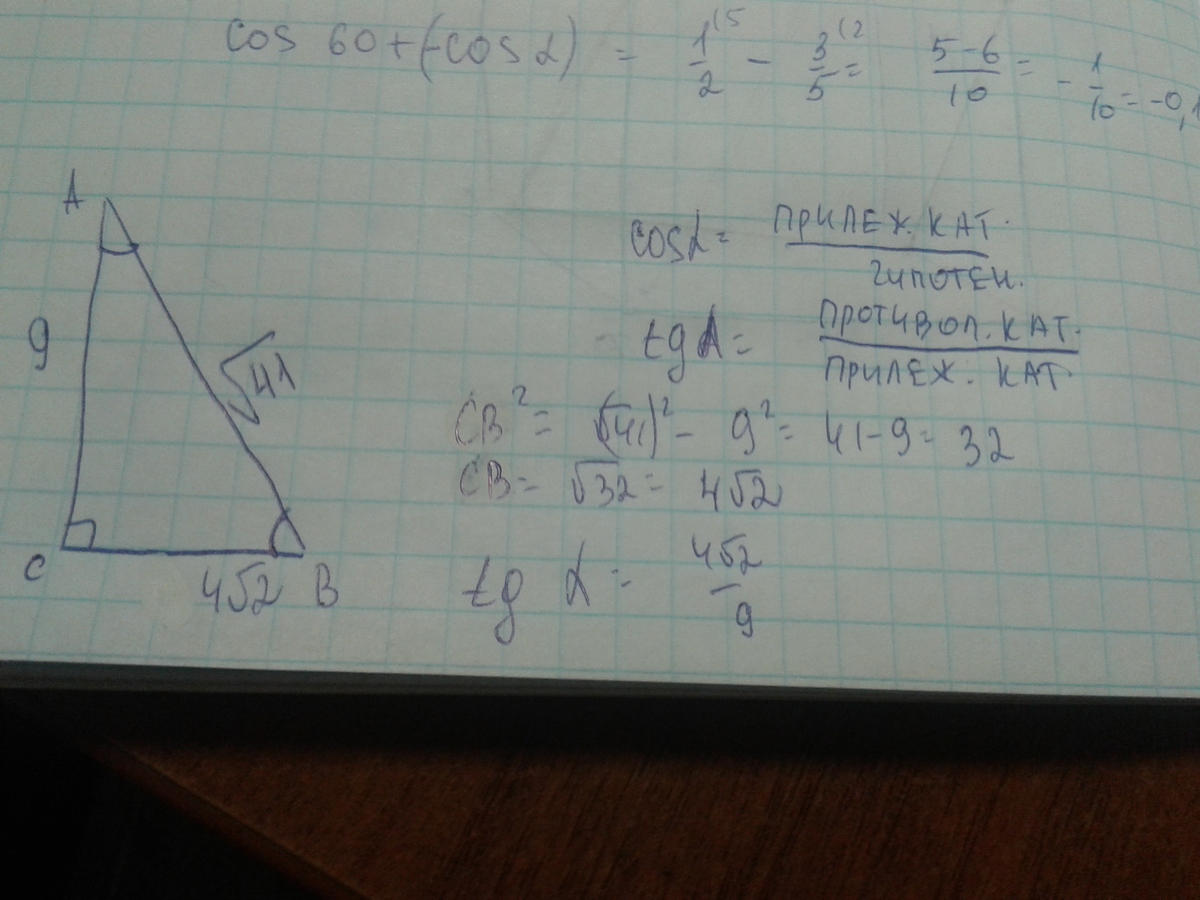 cos 60+(-cos α) = 1/2 (5 - 3/5 (2 = 5-6/10 = -1/10 = -0,1
A
cosα = ПРИЛЕЖ. КАТ./ГИПОТЕН.
9
√41
tg A = ПРОТИВОЛ. КАТ./ПРИЛЕЖ. КАТ
CB² = (√41)² - 9² = 41-9= 32
CB= √32 = 4√2
C
4√2
B
tg α = 4√2/9